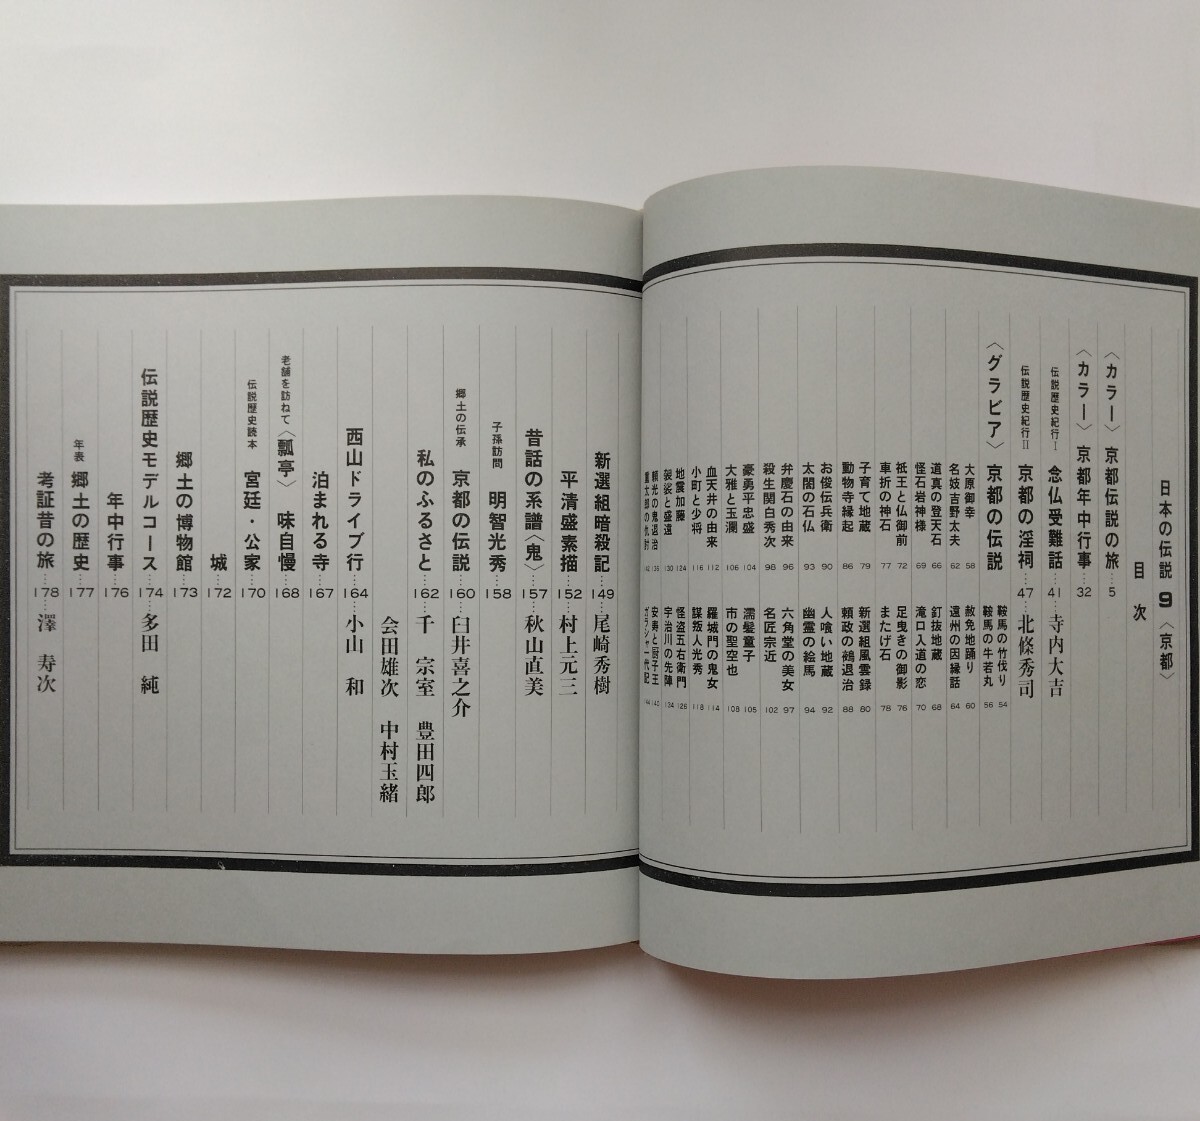 日本の伝説 9 〈京都〉
目次
〈カラー〉 京都伝説の旅…5
〈カラー〉 京都年中行事…32
伝説歴史紀行Ⅰ 念仏受難話…41…寺内大吉
伝説歴史紀行Ⅱ 京都の淫祠…47…北條秀司
〈グラビア〉 京都の伝説
鞍馬の竹伐り 54
鞍馬の牛若丸 56
大原御幸 58
赦免地踊り 60
名妓吉野太夫 62
遠州の因縁話 64
道真の登天石 66
釘抜地蔵 68
怪石岩神様 69
滝口入道の恋 70
祇王と仏御前 72
足曳きの御影 76
車折の神石 77
またげ石 78
子育て地蔵 79
新選組風雲録 80
動物寺縁起 86
頼政の鵺退治 88
お俊伝兵衛 90
人喰い地蔵 92
太閤の石仏 93
幽霊の絵馬 94
弁慶石の由来 96
六角堂の美女 97
殺生関白秀次 98
名匠宗近 102
豪勇平忠盛 104
濡髪童子 105
大雅と玉瀾 106
市の聖空也 108
血天井の由来 112
羅城門の鬼女 114
小町と少将 116
謀叛人光秀 118
地震加藤 124
怪盗五右衛門 126
袈裟と盛遠 130
宇治川の先陣 134
頼光の鬼退治 136
安寿と厨子王 140
ガラシャ一代記 144
新選組暗殺記…149…尾崎秀樹
平清盛素描…152…村上元三
昔話の系譜〈鬼〉…157…秋山直美
子孫訪問 明智光秀…158
郷土の伝承 京都の伝説…160…臼井喜之介
私のふるさと…162…千 宗室 豊田四郎
会田雄次 中村玉緒
西山ドライブ行…164…小山 和
泊まれる寺…167
老舗を訪ねて〈瓢亭〉 味自慢…168
伝説歴史読本 宮廷・公家…170
城…172
郷土の博物館…173
伝説歴史モデルコース…174…多田 純
年中行事…176
年表 郷土の歴史…177
考証昔の旅…178…澤 寿次